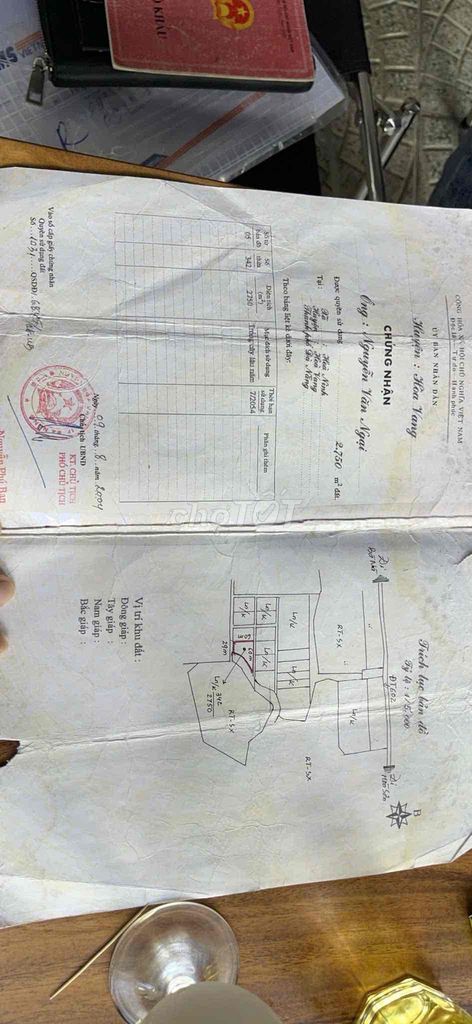 HỘ KHẨU
CỘNG HÒA XÃ HỘI CHỦ NGHĨA VIỆT NAM
Độc lập - Tự do - Hạnh phúc
ỦY BAN NHÂN DÂN
Huyện : Hòa Vang
CHỨNG NHẬN
Ông : Nguyễn Văn Ngại
Được quyền sử dụng 2.750 m² đất
Tại : Xã : Hoà Ninh
Huyện : Hoà Vang
Thành phố Đà Nẵng
Theo bảng liệt kê dưới đây:
Số tờ bản đồ
Số thửa
Diện tích (m²)
Mục đích sử dụng
Thời hạn sử dụng
Phần ghi thêm
05 342 2750 Trồng cây lâu năm 7/2054
Ngày 09 tháng 8 năm 2004
Chủ tịch UBND
KT. CHỦ TỊCH
PHÓ CHỦ TỊCH
Nguyễn Phú Ban
Vào sổ cấp giấy chứng nhận
Quyền sử dụng đất
Số 1031 QSDĐ/
Trích lục bản đồ
Tỷ lệ : 1/5.000
B
Đi
ĐT602
Đi
RT-SX
Ln/k
Ln/k
Ln/k
Ln/k
Ln/k
Ln/k
RT-SX
60m
29m
342
Ln/k 2750
RT-SX
Vị trí khu đất :
Đông giáp :
Tây giáp :
Nam giáp :
Bắc giáp :
chợTỐT